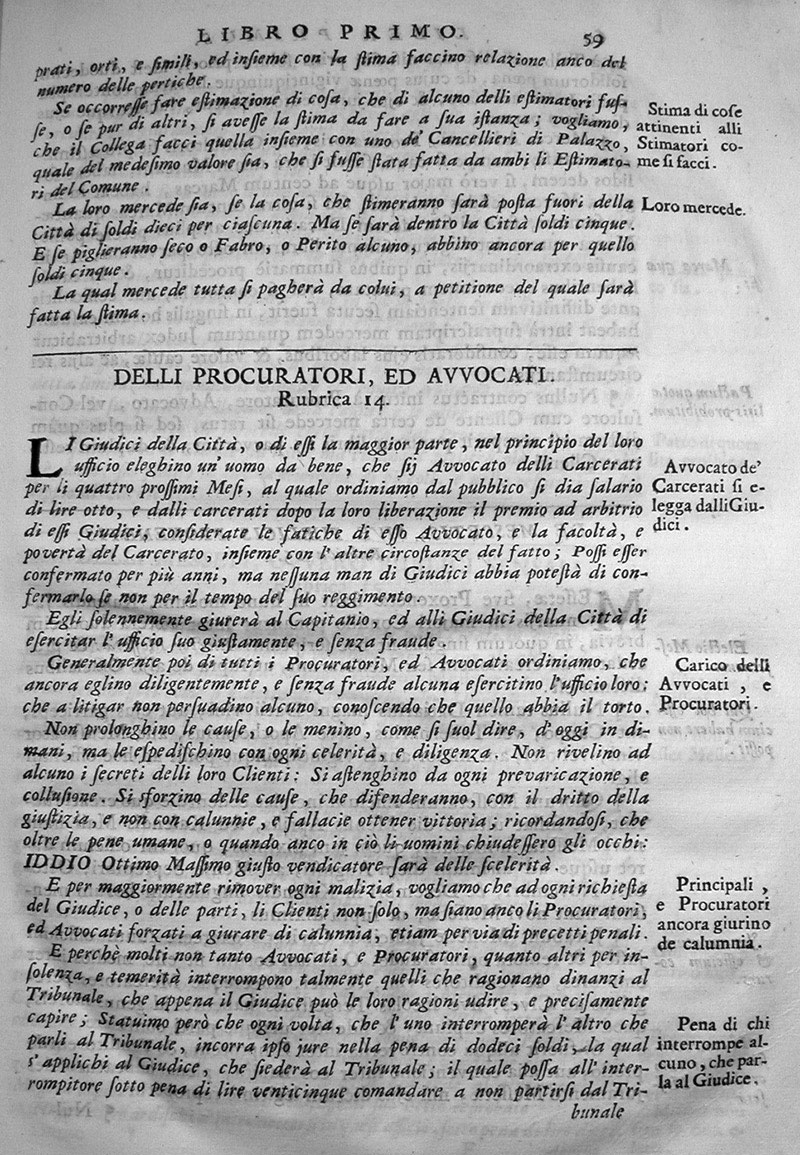 LIBRO PRIMO. 59
prati, orti, e ſimili, ed inſieme con la ſtima faccino relazione anco del
numero delle pertiche.
Se occorreſſe fare eſtimazione di coſa, che di alcuno delli eſtimatori fuſ-
ſe, o ſe pur di altri, ſi aveſſe la ſtima da fare a ſua iſtanza; vogliamo,
che il Collega facci quella inſieme con uno de' Cancellieri di Palazzo,
quale del medeſimo valore ſia, che ſi fuſſe ſtata fatta da ambi li Eſtimato-
ri del Comune.
Stima di coſe
attinenti alli
Stimatori co-
me ſi facci.
La loro mercede ſia, ſe la coſa, che ſtimeranno ſarà poſta fuori della
Città di ſoldi dieci per ciaſcuna. Ma ſe ſarà dentro la Città ſoldi cinque.
E ſe piglieranno ſeco o Fabro, o Perito alcuno, abbino ancora per quello
ſoldi cinque.
Loro mercede.
La qual mercede tutta ſi pagherà da colui, a petitione del quale ſarà
fatta la ſtima.
DELLI PROCURATORI, ED AVVOCATI.
Rubrica 14.
LI Giudici della Città, o di eſſi la maggior parte, nel principio del loro
ufficio eleghino un' uomo da bene, che ſij Avvocato delli Carcerati
per li quattro proſſimi Meſi, al quale ordiniamo dal pubblico ſi dia ſalario
di lire otto, e dalli carcerati dopo la loro liberazione il premio ad arbitrio
di eſſi Giudici, conſiderate le fatiche di eſſo Avvocato, e la facoltà, e
povertà del Carcerato, inſieme con l' altre circoſtanze del fatto; Poſſi eſſer
confermato per più anni, ma neſſuna man di Giudici abbia poteſtà di con-
fermarlo ſe non per il tempo del ſuo reggimento.
Avvocato de'
Carcerati ſi e-
legga dalli Giu-
dici.
Egli ſolennemente giurerà al Capitanio, ed alli Giudici della Città di
eſercitar l' ufficio ſuo giuſtamente, e ſenza fraude.
Generalmente poi di tutti i Procuratori, ed Avvocati ordiniamo, che
ancora eglino diligentemente, e ſenza fraude alcuna eſercitino l' ufficio loro:
che a litigar non perſuadino alcuno, conoſcendo che quello abbia il torto.
Carico delli
Avvocati, e
Procuratori.
Non prolonghino le cauſe, o le menino, come ſi ſuol dire, d' oggi in di-
mani, ma le eſpediſchino con ogni celerità, e diligenza. Non rivelino ad
alcuno i ſecreti delli loro Clienti: Si aſtenghino da ogni prevaricazione, e
colluſione. Si sforzino delle cauſe, che difenderanno, con il dritto della
giuſtizia, e non con calunnie, e fallacie ottener vittoria; ricordandoſi, che
oltre le pene umane, o quando anco in ciò li uomini chiudeſſero gli occhi:
IDDIO Ottimo Maſſimo giuſto vendicatore ſarà delle ſcelerità.
E per maggiormente rimover ogni malizia, vogliamo che ad ogni richieſta
del Giudice, o delle parti, li Clienti non ſolo, ma ſiano anco li Procuratori,
ed Avvocati forzati a giurare di calunnia, etiam per via di precetti penali.
Principali,
e Procuratori
ancora giurino
de calumnia.
E perchè molti non tanto Avvocati, e Procuratori, quanto altri per in-
ſolenza, e temerità interrompono talmente quelli che ragionano dinanzi al
Tribunale, che appena il Giudice può le loro ragioni udire, e preciſamente
capire; Statuimo però che ogni volta, che l' uno interromperà l' altro che
parli al Tribunale, incorra ipſo jure nella pena di dodeci ſoldi, la qual
s' applichi al Giudice, che ſiederà al Tribunale; il quale poſſa all' inter-
rompitore ſotto pena di lire venticinque comandare a non partirſi dal Tri-
bunale
Pena di chi
interrompe al-
cuno, che par-
la al Giudice.